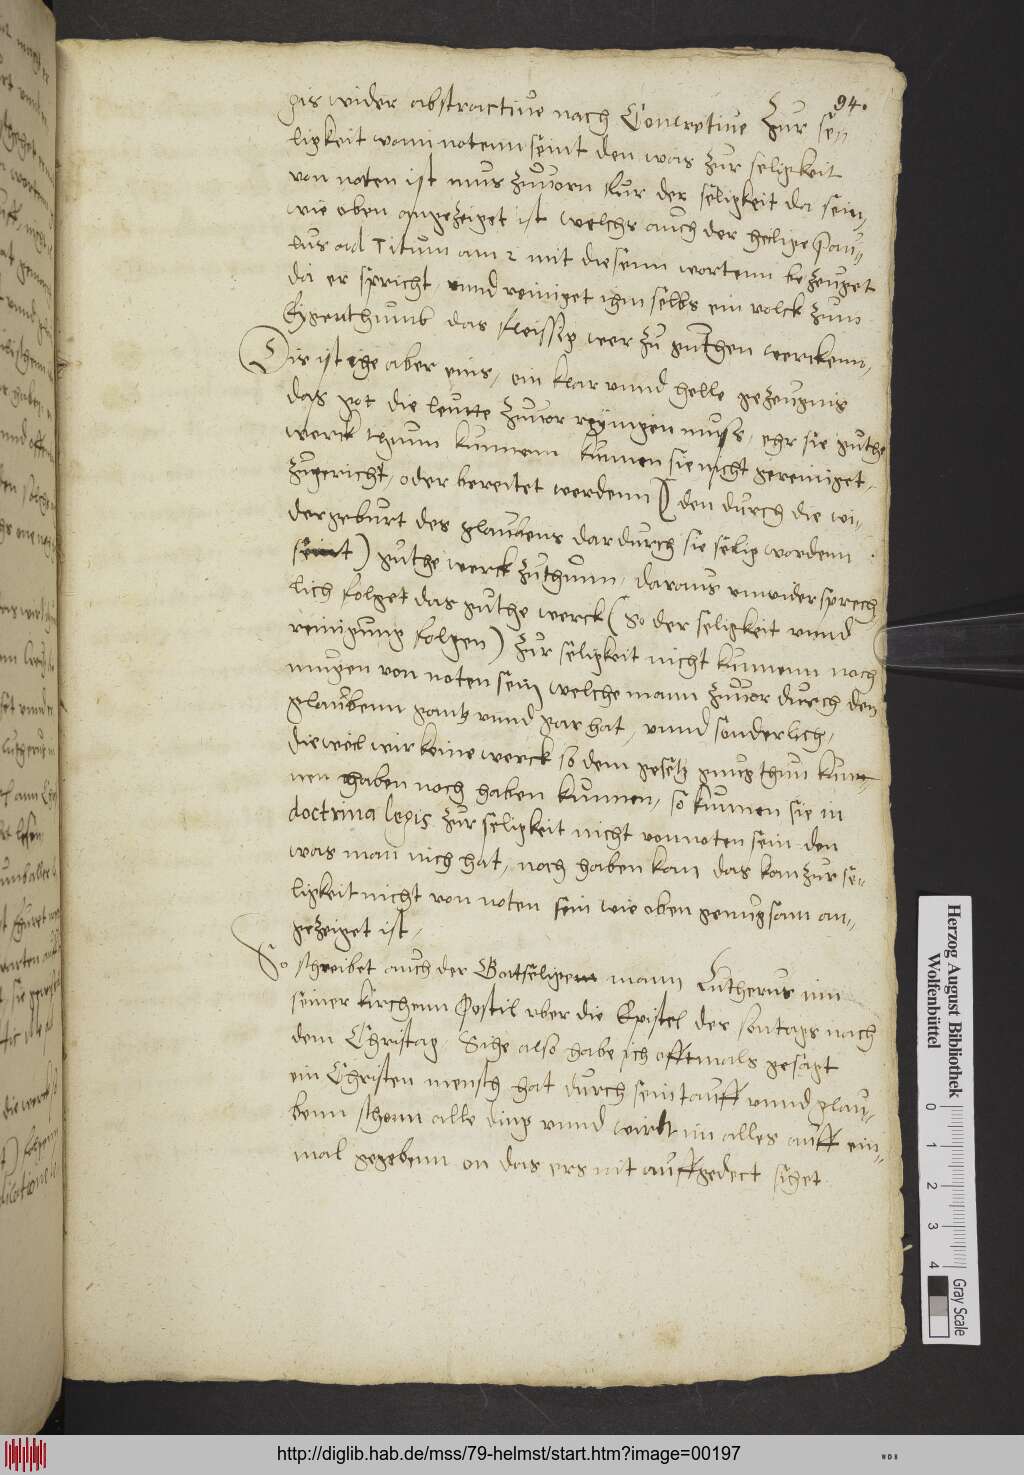 94.
gis wider abstractive nach Concretive zur se-
ligkeit vonn notenn seint den was zur seligkeit
von noten ist mus zuvorn fur der seligkeit da sein,
wie oben angezeiget ist welchs auch der heilige Pau-
lus ad Titum am 2 mit diesenn wortenn bezeuget
da er spricht, unnd reiniget ihm selbs ein volck zum
Eygenthumb das fleissig wer zu guthen werckenn,
Dis ist ihe aber eins, ein klar unnd helle gezeugnis
das got die leutte zuvor reynigen muss, ehr sie guthe
werck thuun kunnenn kunnen sie nicht gereiniget,
zugericht, oder bereitet werdenn) den durch die wi-
dergeburt des glaubens dardurch sie selig wordenn
seint) guthe werck zuthunn, daraus unwidersprech
lich folget das guthe werck (so der seligkeit unnd
reinigung folgen) zur seligkeit nicht kunnenn noch
mugen von noten sein welche mann zuvor durch den
glaubenn gantz unnd gar hat, unnd sonderlich,
die weil wir keine werck so dem gesetz gnug thun kun
nen haben noch haben kunnen, so kunnen sie in
doctrina legis zur seligkeit nicht vonnoten sein den
was man nich hat, noch haben kan das kan zur se-
ligkeit nicht von noten sein wie oben genugsam an-
gezeiget ist,
So schreibet auch der Gottseligenn mann Lutherus inn
seiner kirchenn Postil uber die Epistel des sontags nach
dem Christag, Sihe also habe ich offtmals gesagt
ein Christen mensch hat durch sein tauff unnd glau-
benn schonn alle ding unnd wirdt im alles auff ein-
mal gegebenn on das ers nit auffgedect sihet
Herzog August Bibliothek
Wolfenbüttel
0 1 2 3 4
Gray Scale
http://diglib.hab.de/mss/79-helmst/start.htm?image=00197